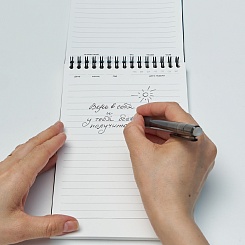 Верь в себя
и
у тебя всё
получится